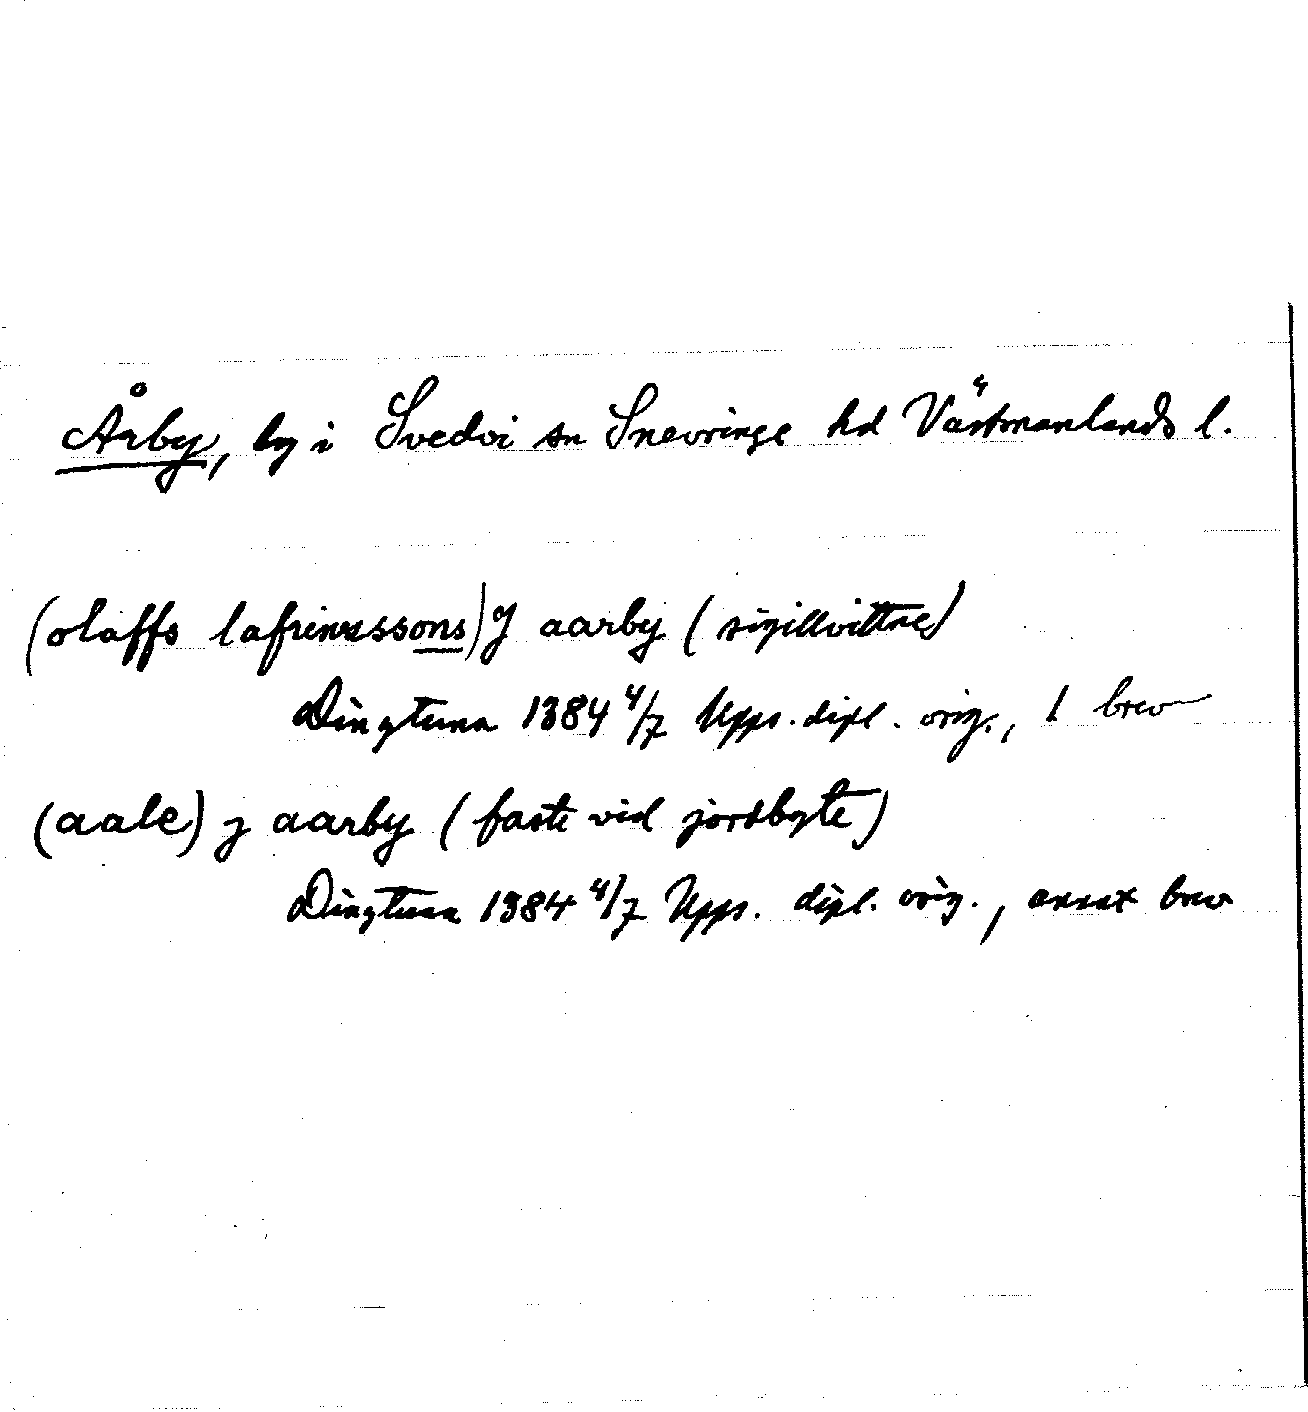 Årby, by i Svedvi sn Snevringe hd Västmanlands l.
(olaffs lafrinssons) J aarby (sigillvittne)
Dingtuna 1384 4/7 Upps. dipl. orig., 1 brev
(aale) j aarby (faste vid jordbyte)
Dingtuna 1384 4/7 Upps. dipl. orig., annat brev